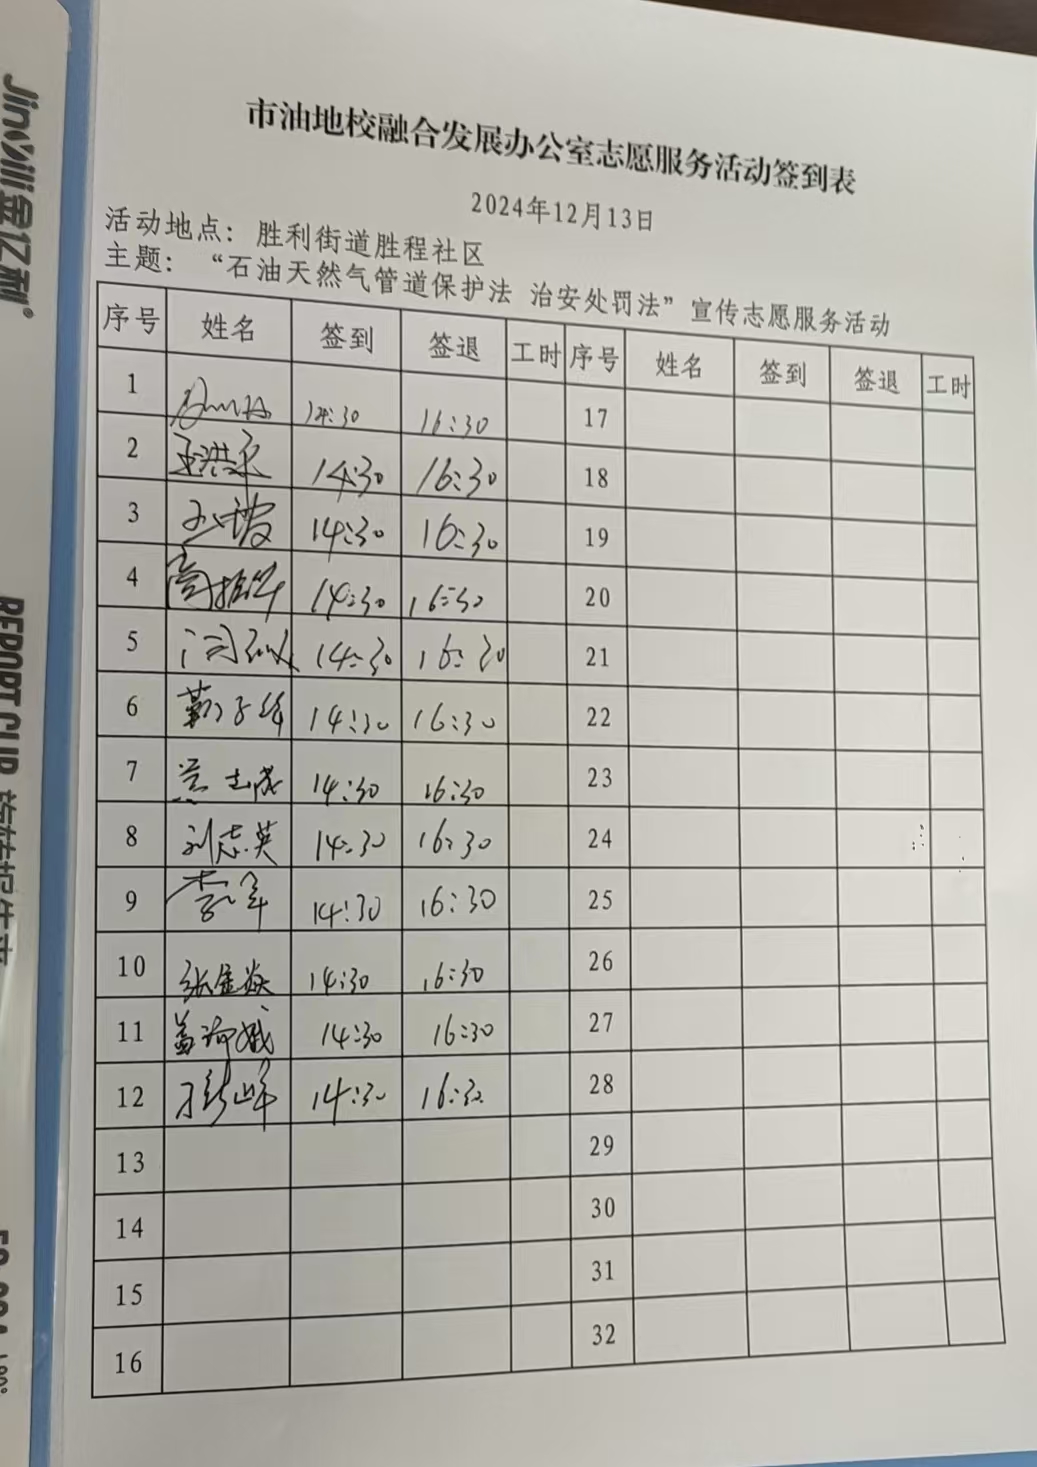 Jinyili金亿利®
REPORT CLIP
市油地校融合发展办公室志愿服务活动签到表
2024年12月13日
活动地点：胜利街道胜程社区
主题：“石油天然气管道保护法 治安处罚法”宣传志愿服务活动
序号 姓名 签到 签退 工时 序号 姓名 签到 签退 工时
1 14:30 16:30 17
2 14:30 16:30 18
3 14:30 16:30 19
4 14:30 16:30 20
5 14:30 16:30 21
6 14:30 16:30 22
7 14:30 16:30 23
8 刘志英 14:30 16:30 24
9 14:30 16:30 25
10 14:30 16:30 26
11 14:30 16:30 27
12 14:30 16:30 28
13 29
14 30
15 31
16 32